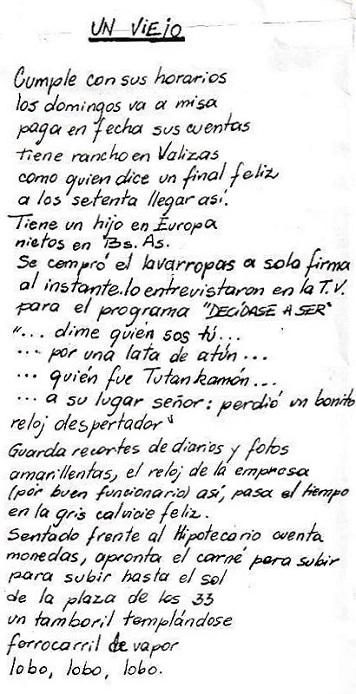 UN VIEJO
Cumple con sus horarios
los domingos va a misa
paga en fecha sus cuentas
tiene rancho en Valizas
como quien dice un final feliz
a los setenta llegar así.
Tiene un hijo en Europa
nietos en Bs. As.
Se compró el lavarropas a sola firma
al instante lo entrevistaron en la T.V.
para el programa "DECÍDASE A SER"
"... dime quién sos tú...
... por una lata de atún...
... quién fue Tutankamón...
... a su lugar señor: perdió un bonito
reloj despertador"
Guarda recortes de diarios y fotos
amarillentas, el reloj de la empresa
(por buen funcionario) así, pasa el tiempo
en la gris calvicie feliz.
Sentado frente al Hipotecario cuenta
monedas, apronta el carné para subir
para subir hasta el sol
de la plaza de los 33
un tamboril templándose
ferrocarril de vapor
lobo, lobo, lobo.